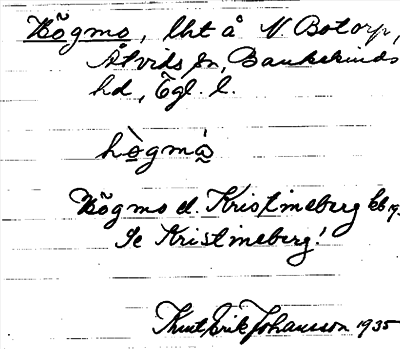 Högmo, lht å N. Botorp,
Åtvids sn, Bankekinds
hd, Ögl. l.
hògmá
Högmo el. Kristineberg Eb 19
Se Kristineberg!
Knut Erik Johansson 1935